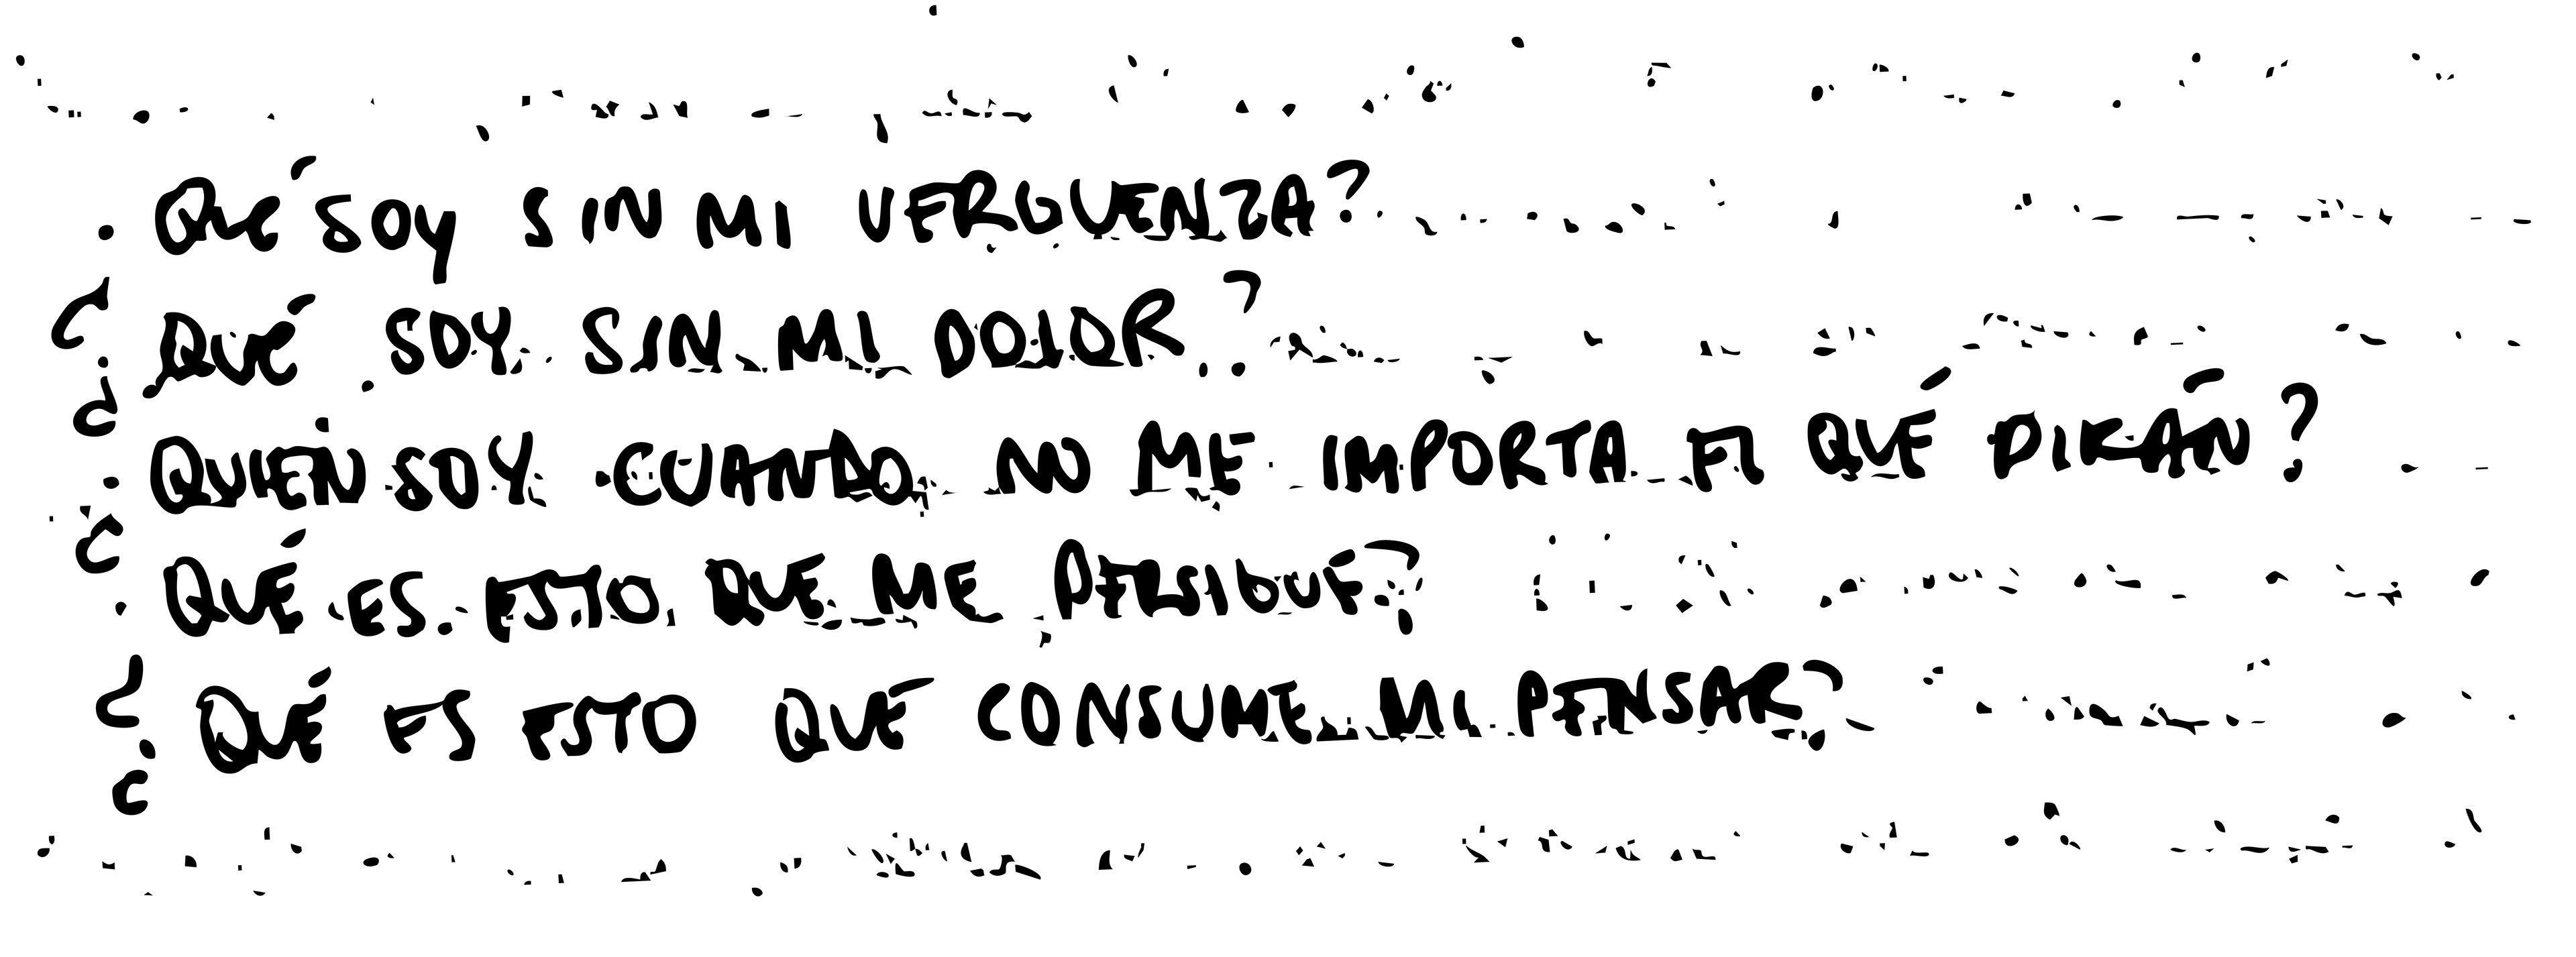 ¿QUÉ SOY SIN MI VERGUENZA?
¿QUÉ SOY SIN MI DOLOR?
¿QUIÉN SOY CUANDO NO ME IMPORTA EL QUÉ DIRÁN?
¿QUÉ ES ESTO QUE ME PERSIGUE?
¿QUÉ ES ESTO QUÉ CONSUME MI PENSAR?